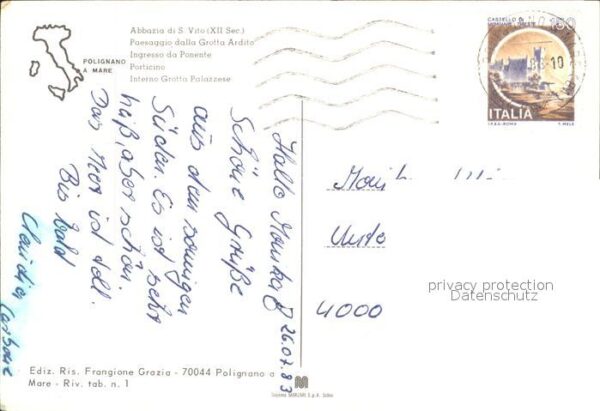 POLIGNANO
A MARE
Abbazia di S. Vito (XII Sec.)
Paesaggio dalla Grotta Ardito
Ingresso da Ponente
Porticino
Interno Grotta Palazzese
CASTELLO DI
ITALIA
I.P.Z.S.-ROMA
10
26.07.83
Hallo
Schöne Grüße
aus dem sonnigen
Süden. Es ist sehr
heiß, aber schön.
Das Meer ist toll.
Bis bald
Claudia
4000
privacy protection
Datenschutz
Ediz. Ris. Frangione Grazia - 70044 Polignano a
Mare - Riv. tab. n. 1